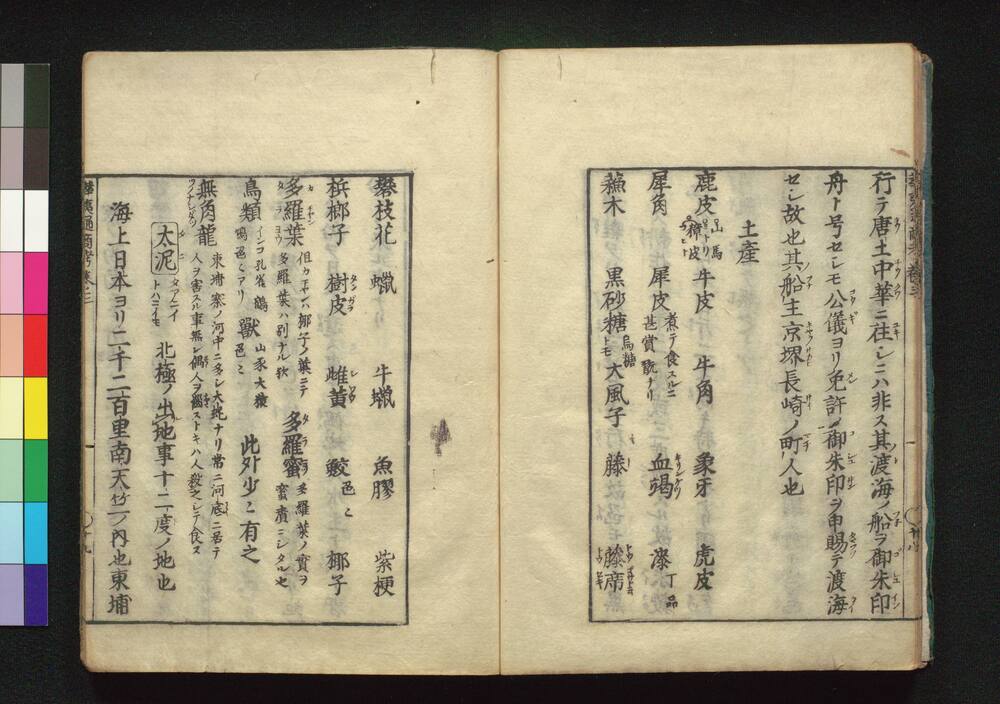 行テ唐土中華ニ往シニハ非ス其渡海ノ船ヲ御朱印
舟ト号セシモ公儀ヨリ免許ノ御朱印ヲ申賜テ渡海
セシ故也其船主京堺長崎ノ町人也
土産
鹿皮 山馬 獐皮 牛皮 牛角 象牙 虎皮
犀角 犀皮 煮テ食スルニ甚賞翫ナリ 血竭 漆 丁品
蘓木 黒砂糖 烏糖トモ 大風子 藤 藤席
攀枝花 蠟 牛蠟 魚膠 紫梗
梹榔子 樹皮 雌黄 鮫 色々 椰子
多羅葉 但カチャンハ椰子ノ葉ニテ多羅葉ハ別ナル欤 多羅蜜 多羅葉ノ實ヲ蜜漬ニシタル也
鳥類 インコ孔雀鸚鵡色々アリ 獸 山豕大猿色々 此外少々有之
無角龍 東埔寨ノ河中ニ多シ大蛇ナリ常ニ河底ニ居テ人ヲ害スル事無シ偶人ヲ悩ストキハ人殺之シテ食ス
太泥 タアニイトハニイモ 北極ノ出地事十二度ノ地也
海上日本ヨリ二千二百里南天竺ノ内也東埔
華夷通商考巻三